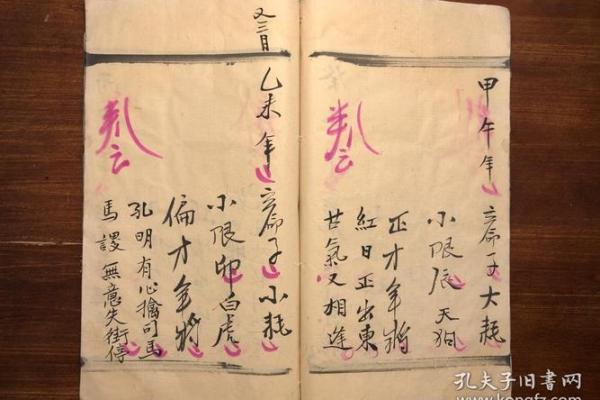 甲午年
立命子大耗
小限辰天狗
正才年將
紅日正出東
廿氣又相逢
又三月
乙未年
立命子小耗
小限卯白虎
偏才年將
孔明有心擒司馬
馬謖無意失街停
孔夫子旧书网
www.kongfz.com